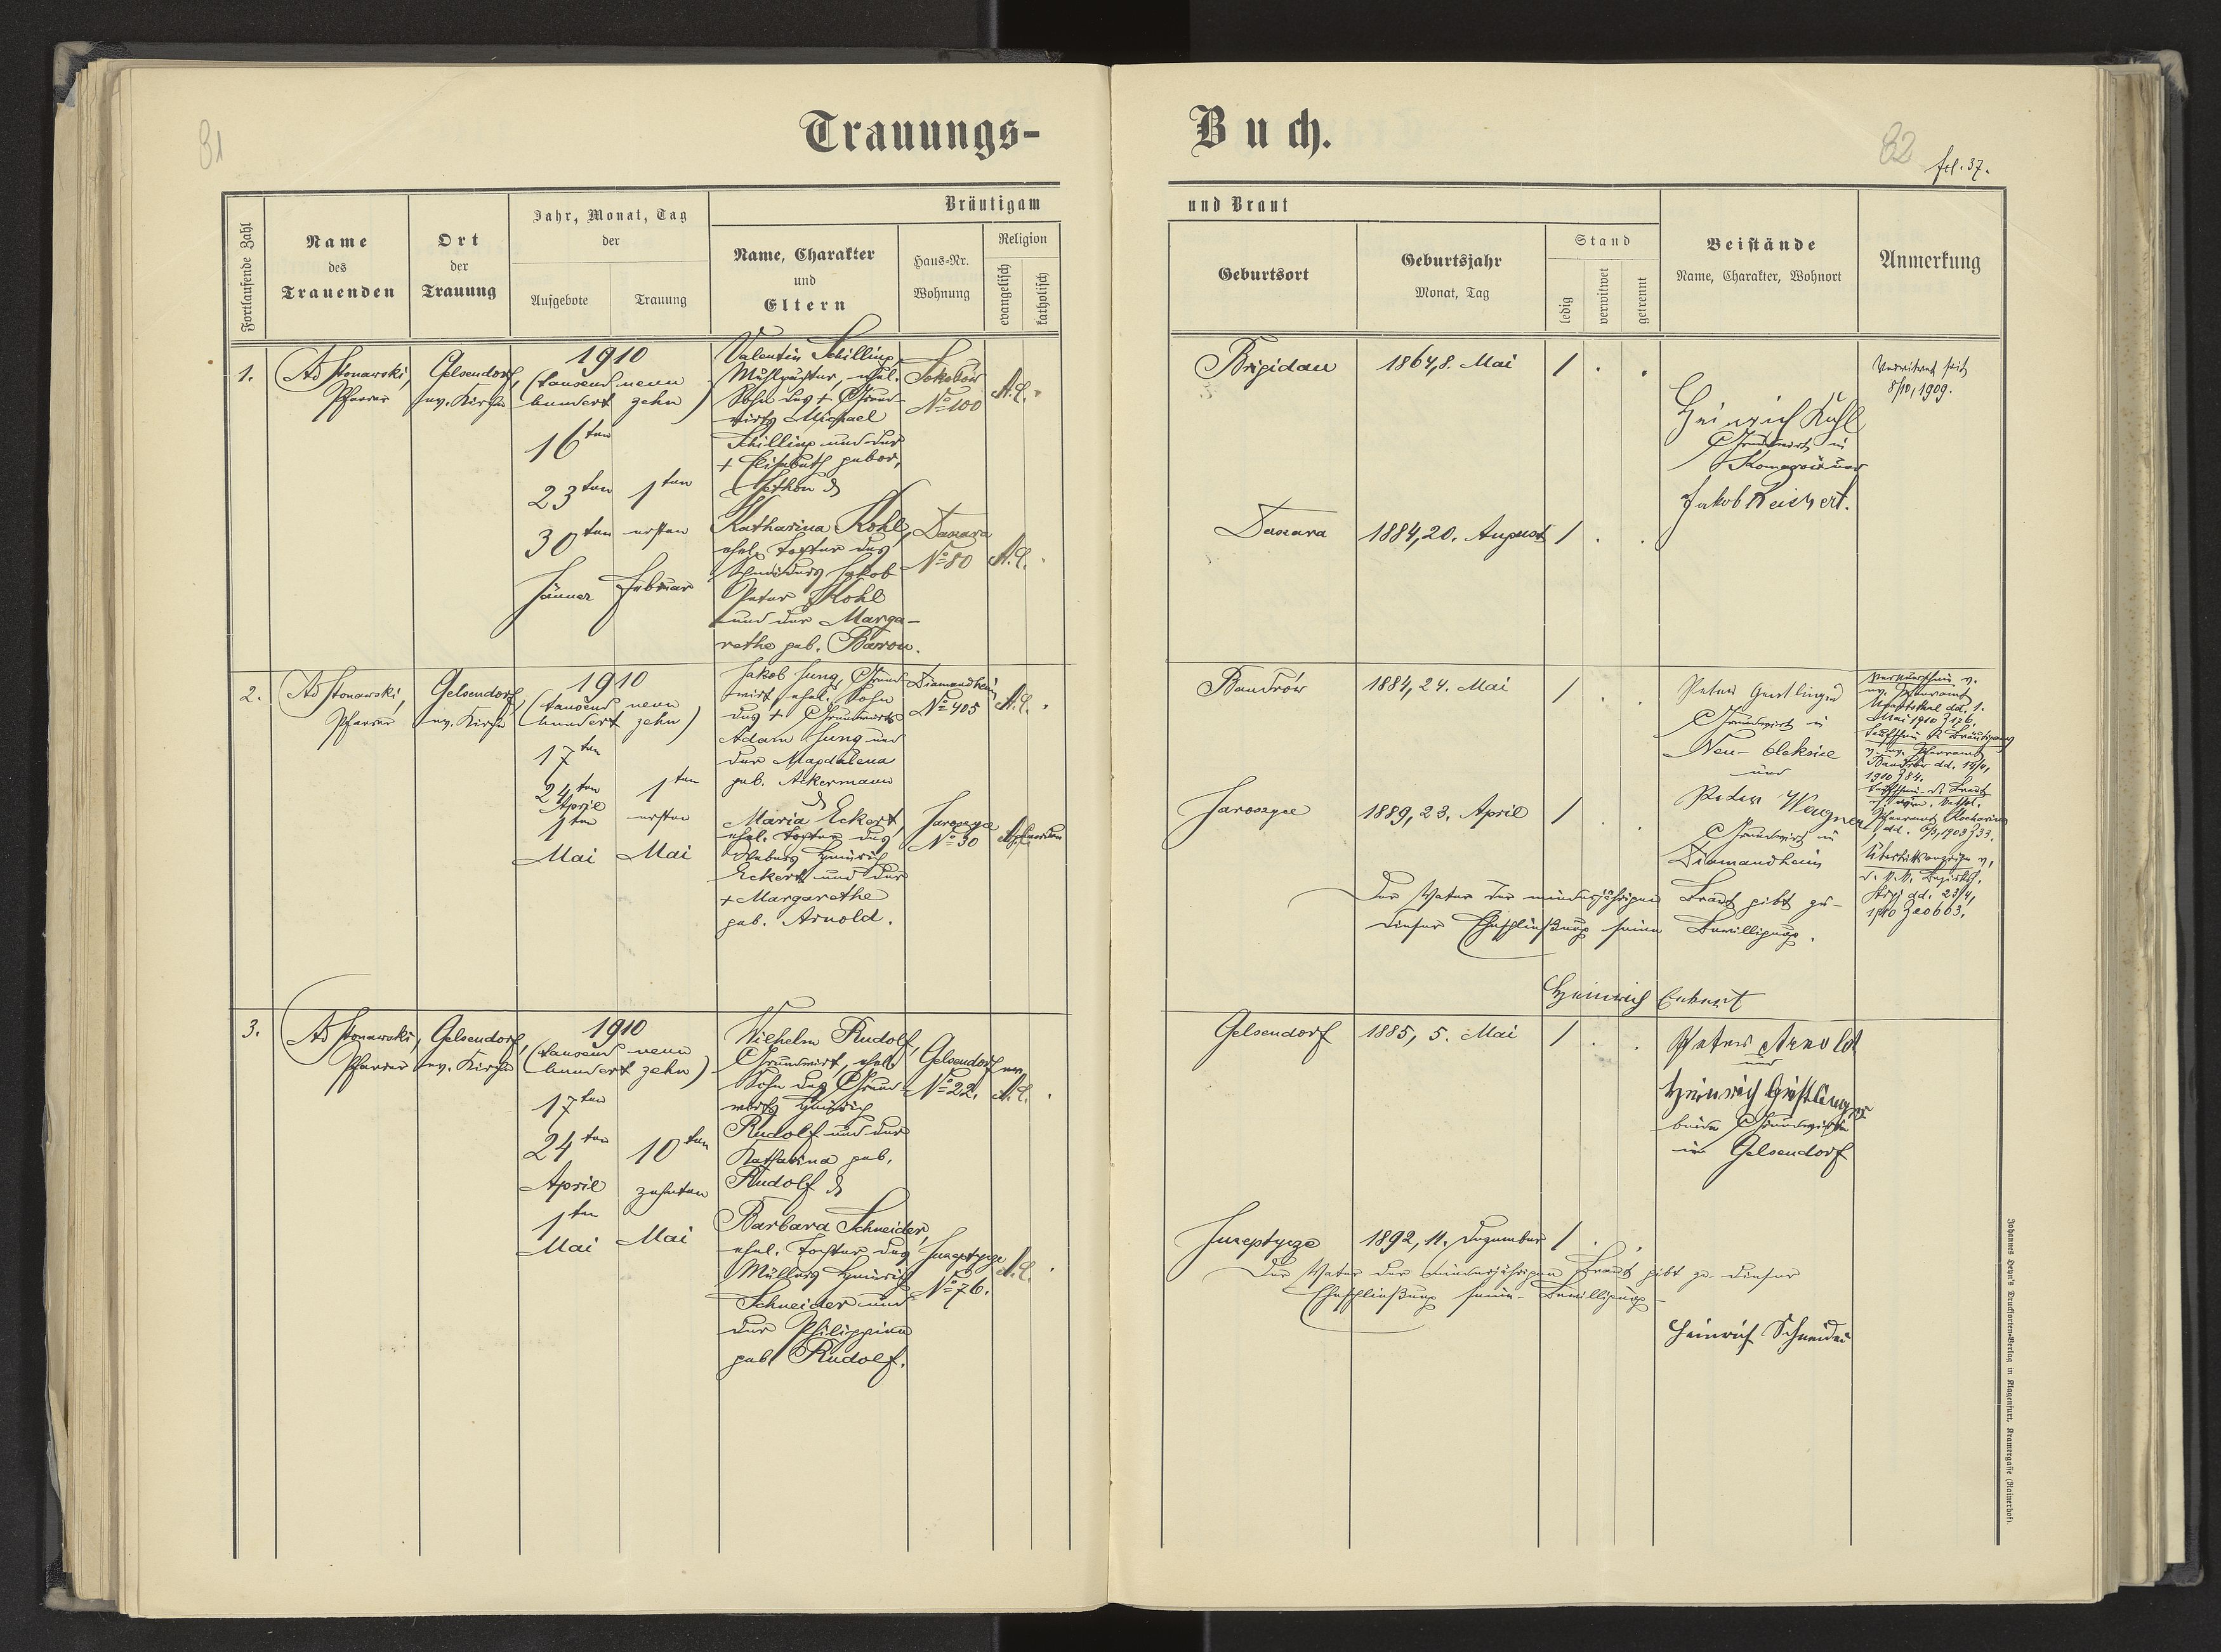 Trauungs-
Buch.
81
82
fol. 37.
Fortlaufende Zahl
Name
des
Trauenden
Ort
der
Trauung
Jahr, Monat, Tag
der
Aufgebote
Trauung
Bräutigam
Name, Charakter
und
Eltern
Haus-Nr.
Wohnung
Religion
evangelisch
katholisch
und Braut
Geburtsort
Geburtsjahr
Monat, Tag
Stand
ledig
verwitwet
getrennt
Beistände
Name, Charakter, Wohnort
Anmerkung
1.
Ad Stonawski,
Pfarrer
Gelsendorf,
ev. Kirche
1910
(tausend neun
hundert zehn)
16ten
23ten
30ten
Jänner
1ten
ersten
Februar
Valentin Schilling
ehel.
Sohn des + Grund-
wirts Michael
Schilling und der
+ Elisabeth gebor.
&
Katharina Kohl,
ehel. Tochter des
Schneiders Jakob
Peter Kohl
und der Marga-
rethe geb. Baron.
No 100
A.C.
Daszawa
No 80
A.C.
Brigidau
1864, 8. Mai
/
Daszawa
1884, 20. August
/
Heinrich Kohl
Grundwirt in
Jakob Reichert.
Verwitwet seit
8/10, 1909.
2.
Ad Stonawski,
Pfarrer
Gelsendorf,
ev. Kirche
1910
(tausend neun
hundert zehn)
17ten
24ten
April
1ten
Mai
1ten
ersten
Mai
Jakob Jung, Grund-
wirt, ehel. Sohn
des + Grundwirts
Adam Jung und
der Magdalena
geb. Ackermann
&
Maria Eckert,
ehel. Tochter des
Webers Heinrich
Eckert und der
+ Margarethe
geb. Arnold.
Diamandheim
No 405
A.C.
No 30
Bandrów
1884, 24. Mai
/
1889, 23. April
/
Peter Gerstlinger
Grundwirt in
Neu-Oleksice
und
Peter Wagner
Grundwirt in
Diamandheim
Mai 1910 Z 126.
Bandrów
1910 Z 84.
Der Vater der minderjährigen Braut gibt zu
dieser Eheschließung seine Bewilligung.
Heinrich Eckert
3.
Ad Stonawski,
Pfarrer
Gelsendorf,
ev. Kirche
1910
(tausend neun
hundert zehn)
17ten
24ten
April
1ten
Mai
10ten
zehnten
Mai
Wilhelm Rudolf,
Grundwirt, ehel.
Sohn des Grund-
wirts Heinrich
Rudolf und der
Katharina geb.
Rudolf &
Barbara Schneider,
ehel. Tochter des
Müllers Heinrich
Schneider und
der Philippine
geb. Rudolf.
Gelsendorf
No 22.
ev.
A.C.
Juseptycze
No 76.
A.C.
Gelsendorf
1885, 5. Mai
/
Juseptycze
1892, 11. Dezember
/
Peter Arnold
und
Heinrich Gerstlinger
beide Grundwirte
in Gelsendorf
Der Vater der minderjährigen Braut gibt zu dieser
Eheschließung seine Bewilligung
Heinrich Schneider
Johannes Heyn's Drucksorten-Verlag in Klagenfurt, Kramergasse (Rainerhof)